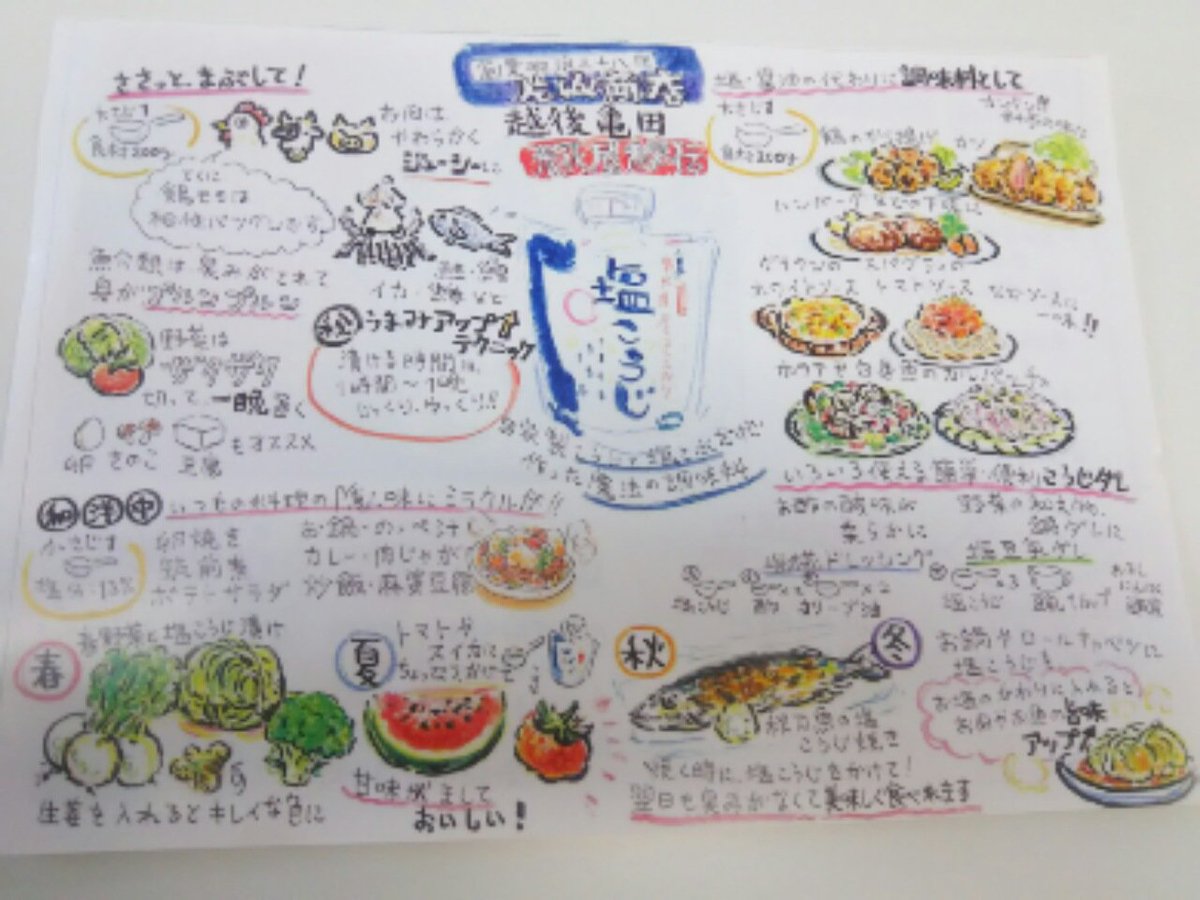 ささっと、まぶして！
大さじ1
食材200g
お肉は
やわらかく
ジューシーに
とくに
鶏ももは
相性バツグンです
魚介類は、臭みがとれて
身がプリンプリン
イカ・
など
野菜は
ザクザク
切って、一晩置く
卵 きのこ 豆腐
もオススメ
うまみアップ
テクニック
漬ける時間は、
1時間～1晩
じっくり、ゆっくり!!
越後亀田
塩こうじ
作った魔法の調味料
塩・醤油の代わりに調味料として
大さじ1
食材200g
鶏のから揚げ
カツ
ハンバーグなどの下味に
グラタンの
スパゲッティの
ホワイトソース
トマトソース
ホタテや白身魚のカルパッチョ
いろいろ使える簡単・便利こうじダレ
お酢の酸味が
柔らかに
野菜の和え物、
鍋ダレに
ドレッシング
塩こうじ
酢
オリーブ油
塩こうじ
和 洋 中
いつもの料理の隠し味に
小さじ1
塩分・13%
卵焼き
筑前煮
ポテトサラダ
お鍋・のっぺ汁
カレー・肉じゃが
炒飯・麻婆豆腐
春
春野菜を塩こうじ漬け
生姜を入れるとキレイな色に
夏
トマトや
スイカに
ちょっとかけて
甘味が増して
おいしい！
秋
秋刀魚の塩
こうじ焼き
焼く時に、塩こうじをかけて！
翌日も臭みがなくて美味しく食べれます
冬
お鍋やロールキャベツに
塩こうじを
お塩のかわりに入れると
お肉やお魚の旨味
アップ